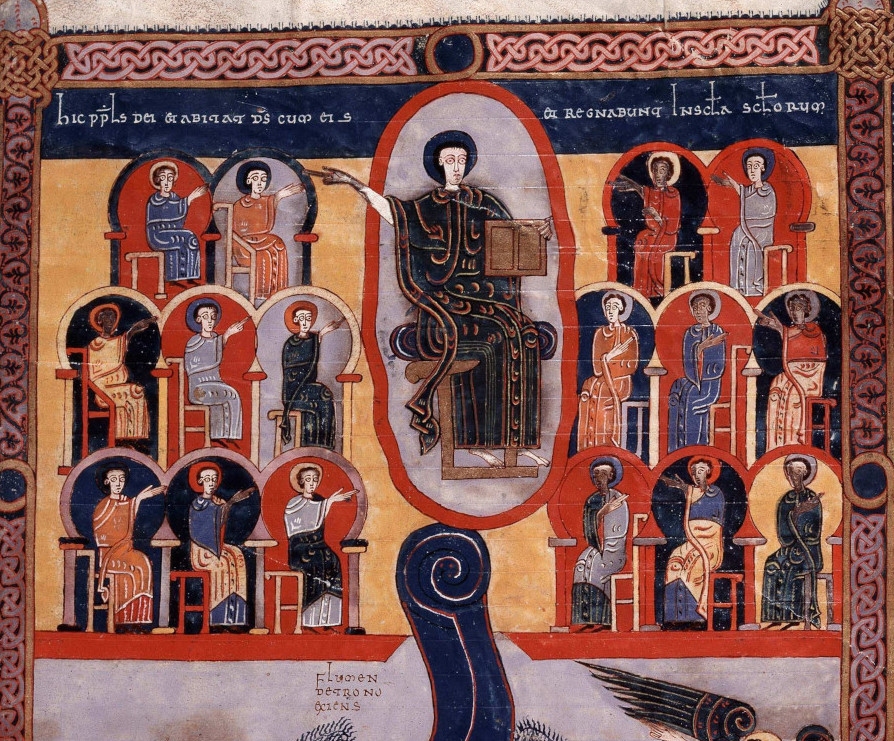 hic pp̄ls dei & abitat d̄s cum eis
et regnabunt In sc̄ta sc̄torum
Flumen
de trono
exiens